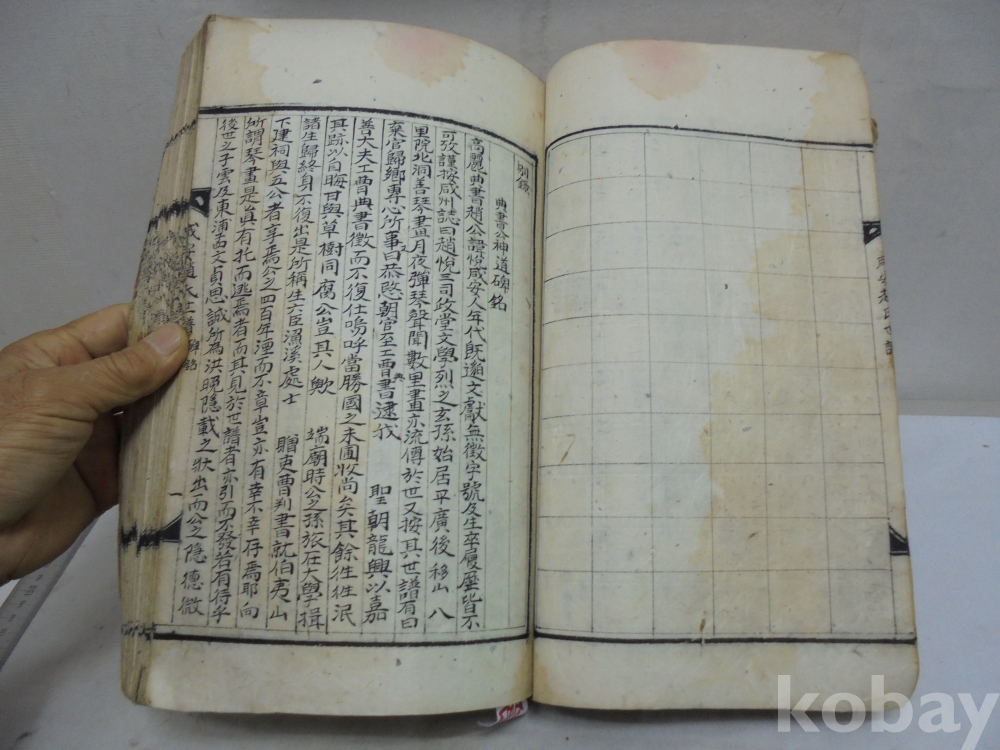 別錄
典書公神道碑銘
高麗典書趙公諱悅咸安人年代旣邈文獻無徵字號及生卒履歷皆不
可攷謹按咸州誌曰趙悅三司政堂文學烈之玄孫始居平廣後移山八
里院北洞善琴畫月夜彈琴聲聞數里畫亦流傳於世又按其世譜有曰
棄官歸鄉專心所事曰恭愍朝官至工曺典書逮我 聖朝龍興以嘉
善大夫工曺典書徵而不復仕嗚呼當勝國之末圃牧尚矣其餘往往泯
其跡以自晦甘與草樹同腐公豈其人歟 端廟時公之孫旅在大學揖
諸生歸終身不復出是所稱生六臣漁溪處士 贈吏曺判書就伯夷山
下建祠與五公者享焉公之四百年湮而不章豈亦有幸不幸存焉耶向
所謂琴畫是眞有托而逃焉者而其見於世譜者亦引而不發若有待乎
後世之子雲及東浦孟文貞思誠所爲洪晩隱載之狀出而公之隱德微
咸安趙氏世譜 碑銘 一
kobay